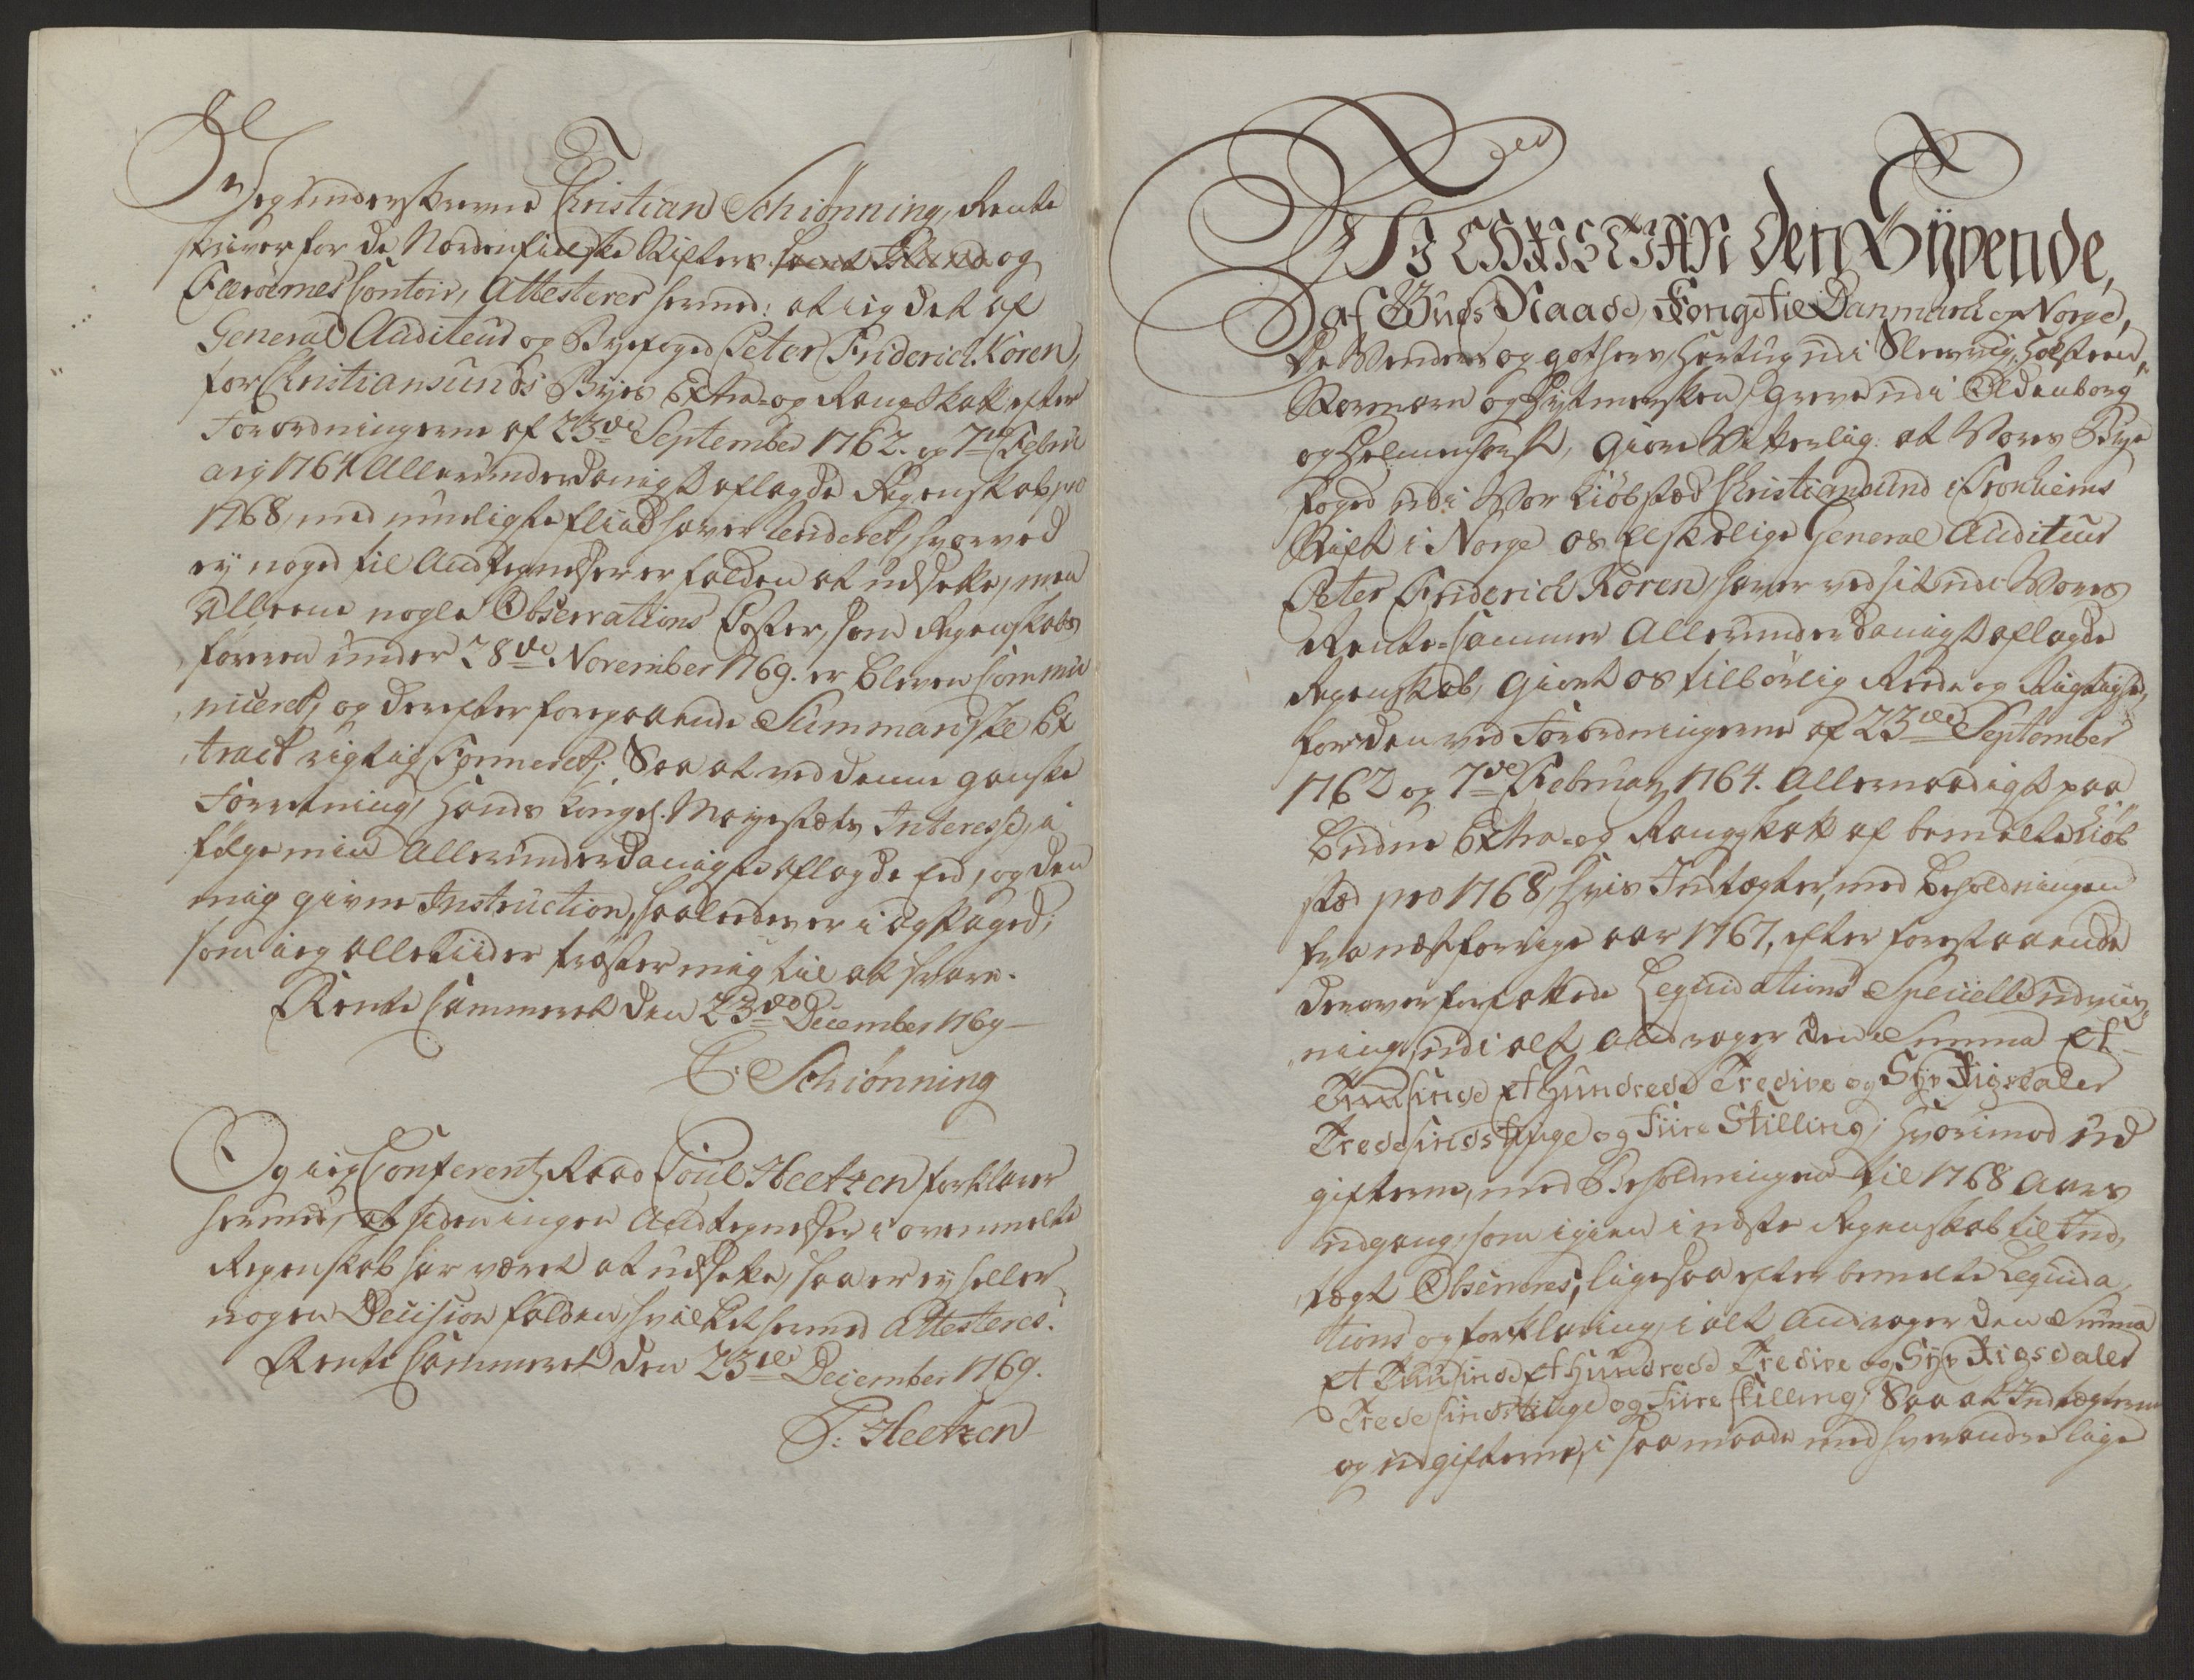 Jeg underskrevne Christian Schiønning, Rente
skriver for de Nordenfieldske Stifters samt Island og
Færøernes Contoir, Attesterer hermed: at ieg det af
General Auditeur og Byefoged Peter Friderich Koren,
for Christiansunds Byes Extra- og Rang Skatt efter
Forordningerne af 23de September 1762. og 7de Febru
arij 1764 Allerunderdanigst aflagde Regenskab pro
1768, med muligste fliid haver revideret, hvorved
ey noget til Andtegnelser er falden at udsette, men
Alleene nogle Observations Poster, som Regenskabs
føreren under 28de November 1769. er bleven commu
niceret, og derefter foregaaende Summariske Ex
tract rigtig Formeret; Saa at ved denne ganske
Forretning, Hands Kongel. Mayestæts Interesse, i
følge min Allerunderdanigste aflagde Eed, og den
mig givne Instruction, saaledes er iagttaget;
som ieg alle tiider trøster mig til at svare.
Rente Cammeret den 23de December 1769
C. Schiønning
Og ieg Conferentz Raad Poul Heetzen forklarer
hermed, at siden ingen Andtegnelser i ovenmelte
Regenskab har været at udsette, saa er ey heller
nogen Decision falden, hvilket hermed Attesteres.
Rente Cammeret den 23de December 1769.
P. Heetzen
VI CHRISTIAN den Syvende,
af Guds Naade, Konge til Danmark og Norge,
de Venders og Gothers, Hertug udi Slesvig, Holsteen,
Stormarn og Dytmersken, Greve udi Oldenborg
og Delmenhorst, Giøre Vitterlig: at Vores Bye
foged udi Vor Kiøbstæd Christiansund i Tronhiems
Stift i Norge os Elskelige General Auditeur
Peter Friderich Koren, haver ved sit udi Vores
Rente-Cammer Allerunderdanigst aflagde
Regenskab, Giort os tilbørlig Reede og Rigtighed,
for den ved Forordningerne af 23de September
1762 og 7de Februarij 1764. Allernaadigst paa
budne Extra- og Rangskatt af bemelte Kiøb
stæd pro 1768, hvis Indtægter, med Beholdningen
fra næstforrige aar 1767, efter forestaaende
derover forfattede Leqvidations Specielle udviis
ning, udi alt Andrager den Summa Et
Tuusinde Et hundrede Tredive og Syv Rigsdaler
Tredesindstiuge og Fiire Skilling; hvorimod Ud
gifterne, med Beholdningen til 1768 Aars
udgang, som igien i næste Regenskab til Ind,
tægt Observeres, ligesaa efter bemelte Leqvida
tions og forklaring, i alt Andrager den Summa
Et Tuusinde Et hundrede Tredive og Syv Rigsdaler
Tredesindstiuge og Fiire skilling; Saa at Indtægterne
og udgifterne, i saa maade med hverandre lige